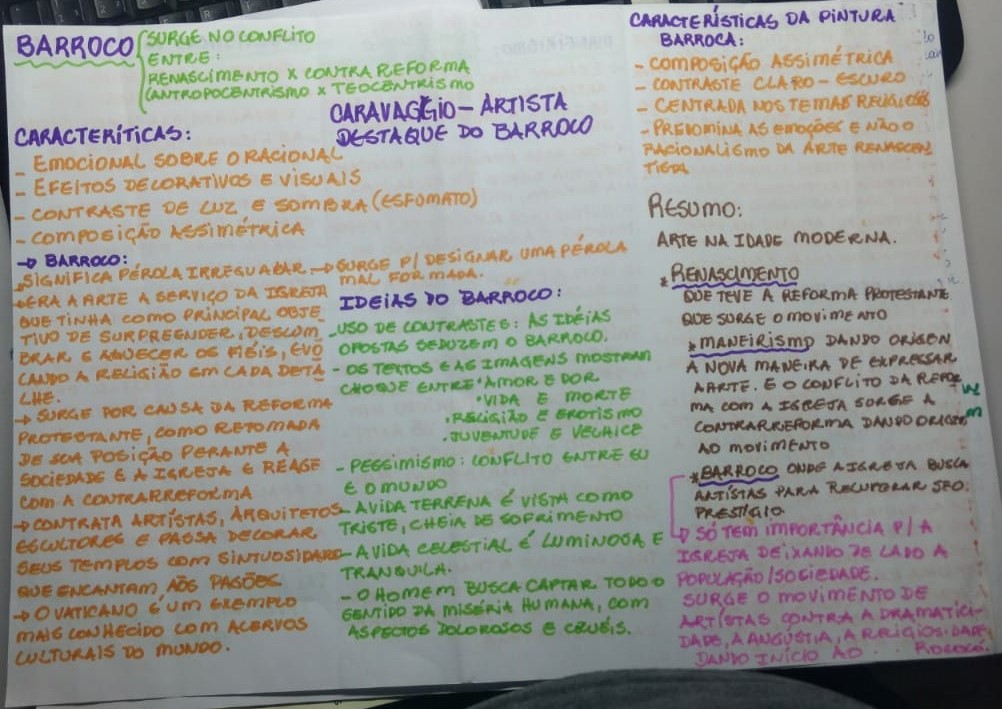 BARROCO
SURGE NO CONFLITO
ENTRE:
RENASCIMENTO X CONTRA REFORMA
(ANTROPOCENTRISMO X TEOCENTRISMO
CARAVAGGIO - ARTISTA
DESTAQUE DO BARROCO
CARACTERÍTICAS:
- EMOCIONAL SOBRE O RACIONAL
- EFEITOS DECORATIVOS E VISUAIS
- CONTRASTE DE LUZ E SOMBRA (ESFOMATO)
- COMPOSIÇÃO ASSIMÉTRICA
→ BARROCO:
SIGNIFICA PÉROLA IRREGUALAR → SURGE P/ DESIGNAR UMA PÉROLA
MAL FORMADA.
→ ERA A ARTE A SERVIÇO DA IGREJA
QUE TINHA COMO PRINCIPAL OBJE
TIVO DE SURPREENDER, DESLUM
BRAR E AQUECER OS FIÉIS, EVO
CANDO A RELIGIÃO EM CADA DETA
LHE.
→ SURGE POR CAUSA DA REFORMA
PROTESTANTE, COMO RETOMADA
DE SUA POSIÇÃO PERANTE A
SOCIEDADE E A IGREJA E REAGE
COM A CONTRARREFORMA
→ CONTRATA ARTÍSTAS, ARQUITETOS
ESCULTORES E PASSA DECORAR
SEUS TEMPLOS COM SINTUOSIDADE
QUE ENCANTAM AOS PAGÕES
→ O VATICANO É UM EXEMPLO
MAIS CONHECIDO COM ACERVOS
CULTURAIS DO MUNDO.
IDEIAS DO BARROCO:
- USO DE CONTRASTES: AS IDÉIAS
OPOSTAS SEDUZEM O BARROCO.
- OS TEXTOS E AS IMAGENS MOSTRAM
CHOQUE ENTRE • AMOR E DOR
• VIDA E MORTE
• RELIGIÃO E EROTISMO
• JUVENTUDE E VELHICE
- PESSIMISMO: CONFLITO ENTRE EU
E O MUNDO
- A VIDA TERRENA É VISTA COMO
TRISTE, CHEIA DE SOFRIMENTO
- A VIDA CELESTIAL É LUMINOSA E
TRANQUILA.
- O HOMEM BUSCA CAPTAR TODO O
SENTIDO DA MISÉRIA HUMANA, COM
ASPECTOS DOLOROSOS E CRUÉIS.
CARACTERÍSTICAS DA PINTURA
BARROCA:
- COMPOSIÇÃO ASSIMÉTRICA
- CONTRASTE CLARO - ESCURO
- CENTRADA NOS TEMAS RELIGIOSOS
- PREDOMINA AS EMOÇÕES E NÃO O
RACIONALISMO DA ARTE RENASCEN
TISTA
RESUMO:
ARTE NA IDADE MODERNA.
* RENASCIMENTO
QUE TEVE A REFORMA PROTESTANTE
QUE SURGE O MOVIMENTO
* MANEIRISMO DANDO ORIGEN
A NOVA MANEIRA DE EXPRESSAR
A ARTE. E O CONFLITO DA REFOR
MA COM A IGREJA SURGE A
CONTRARREFORMA DANDO ORIGEM
AO MOVIMENTO
* BARROCO ONDE A IGREJA BUSCA
ARTÍSTAS PARA RECUPERAR SEO
PRESTÍGIO.
→ SÓ TEM IMPORTÂNCIA P/ A
IGREJA DEIXANDO DE LADO A
POPULAÇÃO/SOCIEDADE.
SURGE O MOVIMENTO DE
ARTÍSTAS CONTRA A DRAMATICI-
DADE, A ANGÚSTIA, A RELIGIOSIDADE,
DANDO INÍCIO AO ... ROCOCÓ.